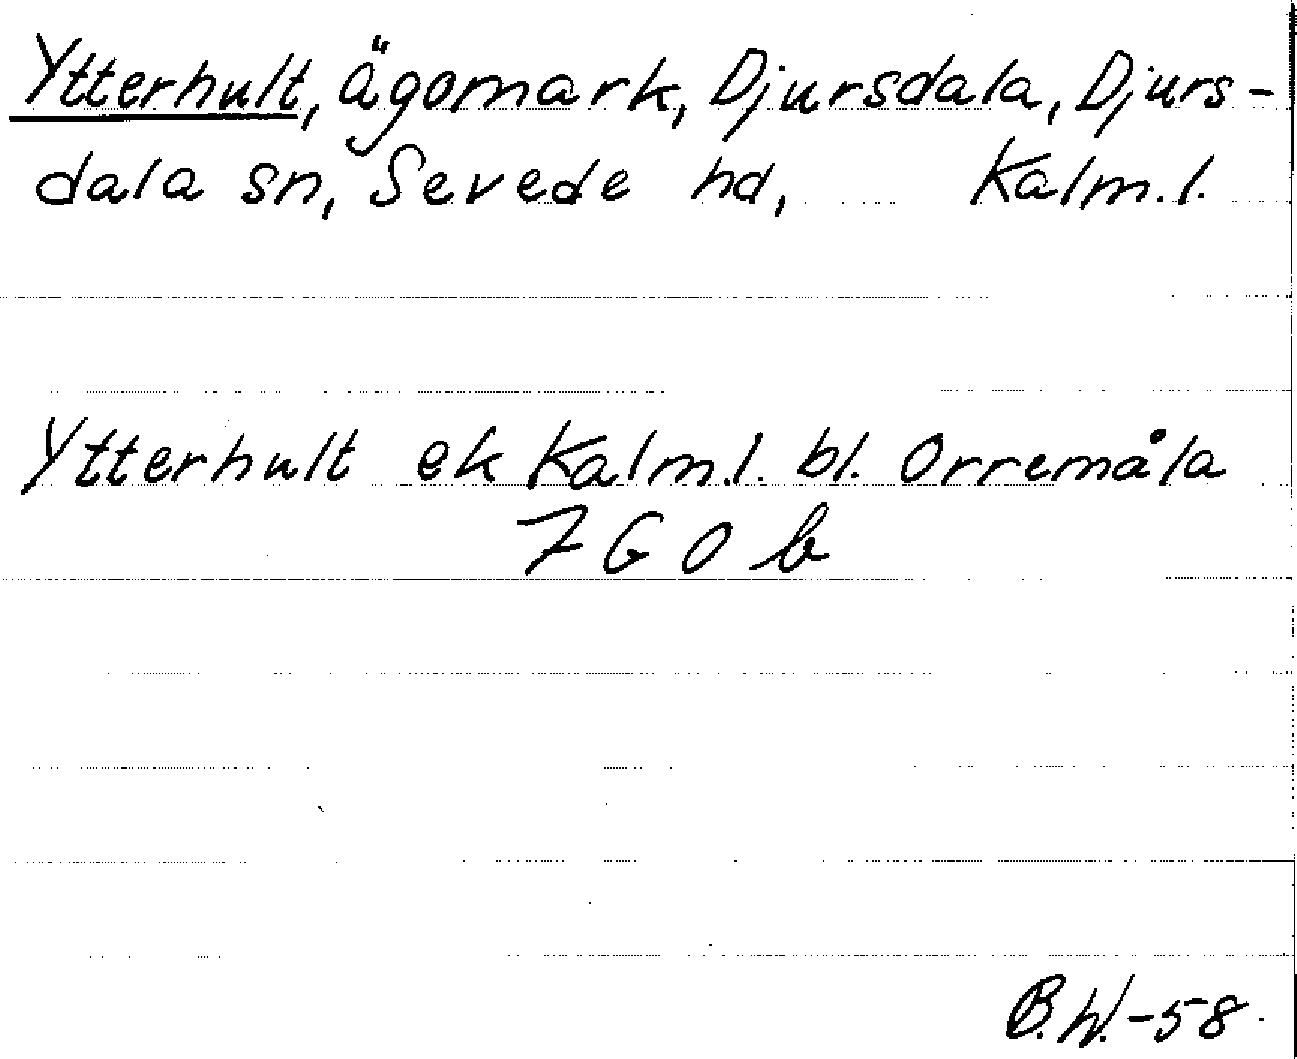 Ytterhult, Ägomark, Djursdala, Djurs-
dala sn, Sevede hd, Kalm.l.
Ytterhult ek Kalm.l. bl. Orremåla
7 G O b
B.W.-58.